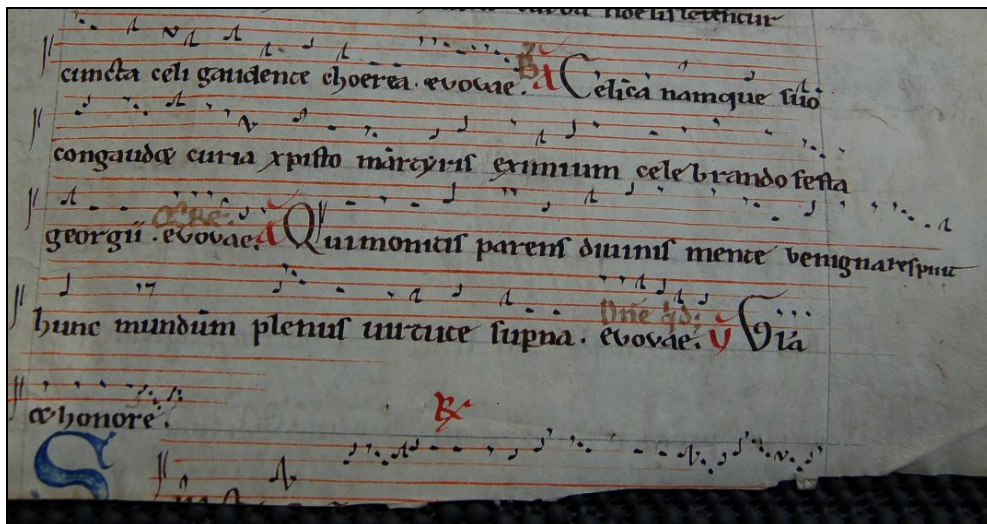 cuncta celi gaudent ce choerea . evovae . a Celica namque suo
congaudet curia xpisto martyris eximium celebrando festa
georgii . evovae . a Qui monitis parens diuinis mente benigna respuit
hunc mundum plenus uirtute sup̄na . evovae . v Gl̄ia
et honore .
R
S